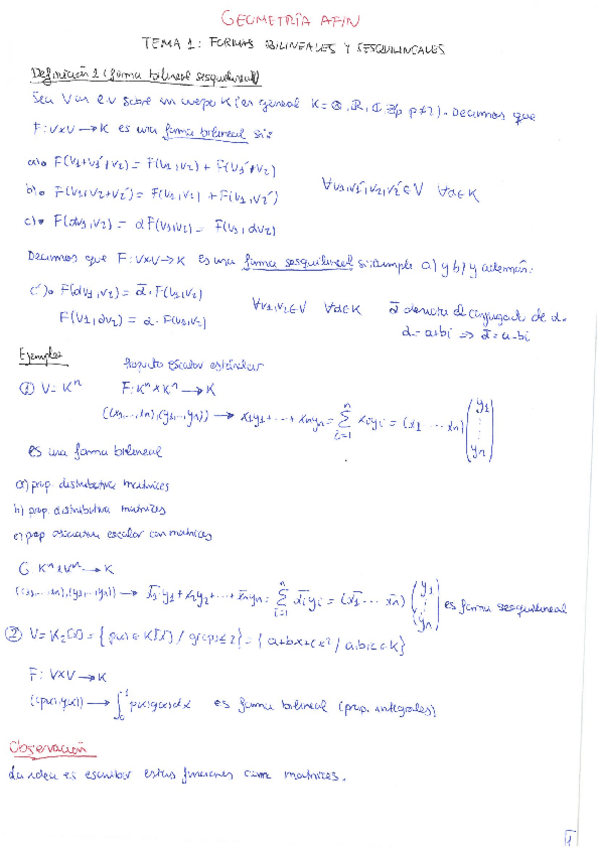 GEOMETRÍA AFÍN
TEMA 1: FORMAS BILINEALES Y SESQUILINEALES
Definición 1 (forma bilineal sesquilineal)
Sea V un e.v sobre un cuerpo K (en general K = Q, R, C, Zp p≠2). Decimos que
F: V×V → K es una forma bilineal si:
a) F(v1+v1', v2) = F(v1, v2) + F(v1', v2)
b) F(v1, v2+v2') = F(v1, v2) + F(v1, v2') ∀v1, v1', v2, v2' ∈ V ∀α ∈ K
c) F(αv1, v2) = αF(v1, v2) = F(v1, αv2)
Decimos que F: V×V → K es una forma sesquilineal si cumple a) y b) y además:
c') F(αv1, v2) = ᾱ · F(v1, v2)
F(v1, αv2) = α · F(v1, v2) ∀v1, v2 ∈ V ∀α ∈ K ᾱ denota el conjugado de α.
α = a+bi ⟹ ᾱ = a-bi
Ejemplos Producto escalar estándar
① V = Kⁿ F: Kⁿ × Kⁿ → K
((x1, ..., xn), (y1, ..., yn)) → x1y1 + ... + xnyn = Σ(i=1, n) xiyi = (x1 ... xn) (y1 ⋮ yn)
es una forma bilineal
a) prop. distributiva matrices
b) prop. distributiva matrices
c) prop asociativa escalar con matrices
G Kⁿ × Kⁿ → K
((x1, ..., xn), (y1, ..., yn)) → x̄1y1 + x̄2y2 + ... + x̄nyn = Σ(i=1, n) x̄iyi = (x̄1 ... x̄n) (y1 ⋮ yn) es forma sesquilineal
② V = K2[x] = { p(x) ∈ K[x] / gr(p) ≤ 2 } = { a+bx+cx² / a,b,c ∈ K }
F: V×V → K
(p(x), q(x)) → ∫₀¹ p(x)q(x)dx es forma bilineal (prop. integrales)
Observación
La idea es escribir estas funciones como matrices.
1